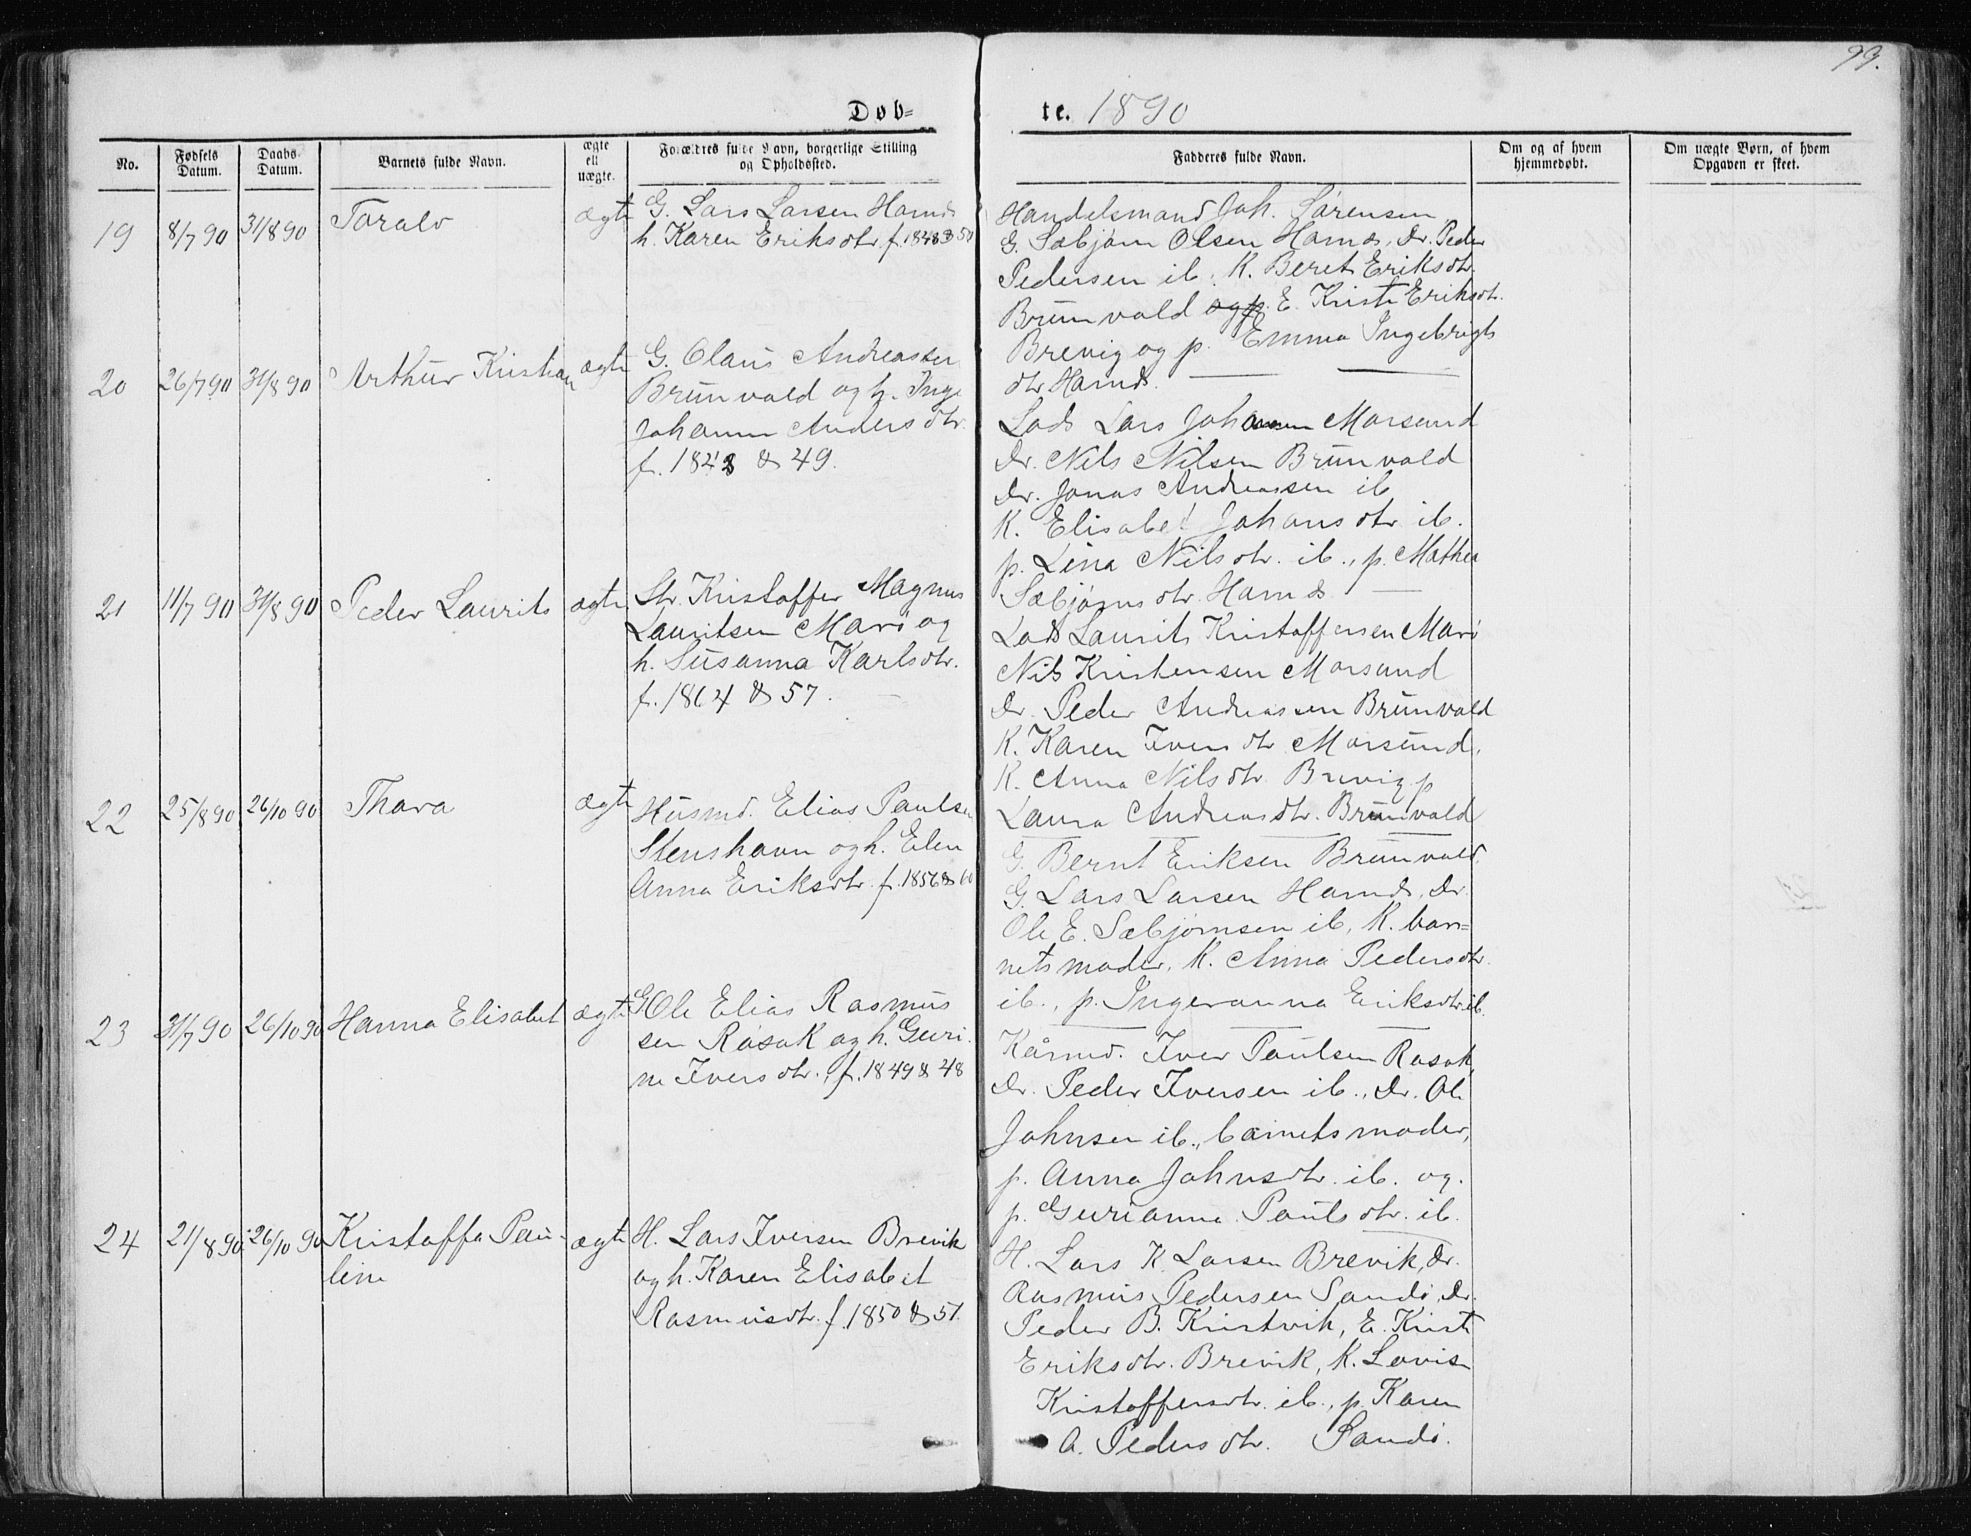 99.
Døb= te. 1890
No. Fødsels Datum. Daabs Datum. Barnets fulde Navn. ægte ell uægte. Forældres fulde Navn, borgerlige Stilling og Opholdssted. Fadderes fulde Navn. Om og af hvem hjemmedøbt. Om uægte Børn, af hvem Opgaven er skeet.
19 8/7 90 31/8 90 Toralv ægte G. Lars Larsen Hamds
h. Karen Eriksdtr. f. 1848 & 50
Handelsmand Joh. Sørensen
G. Sæbjørn Olsen Hamds, Dr. Peder
Pedersen ib. K. Beret Eriksdtr.
Brunvald og p. E. Kristi Eriksdtr.
Brevig og p. Emma Ingebrigts
dtr Hamds.
20 26/7 90 31/8 90 Arthur Kristian ægte G. Olaus Andreassen
Brunvald og h. Inge
Johanna Andersdtr.
f. 1843 & 49.
Lods Lars Johansen Morsund
Dr. Nils Nilsen Brunvald
Dr. Jonas Andreassen ib
K. Elisabet Johansdtr. ib.
p. Lina Nilsdtr. ib., p. Mathea
Sæbjørnsdtr. Hamds
21 11/7 90 31/8 90 Peder Laurits ægte Str. Kristoffer Magnus
Lauritsen Marø og
h. Susanna Karlsdtr.
f. 1864 & 57.
Lods Laurits Kristoffersen Marø
Nils Kristensen Morsund
Dr. Peder Andreassen Brunvald
K. Karen Iversdtr. Morsund.
K. Anna Nilsdtr. Brevig p
Laura Andreasdtr. Brunvald
22 25/8 90 26/10 90 Thora ægte Husmd. Elias Paulsen
Stenshavn og h. Elen
Anna Eriksdtr. f. 1856 & 60
G. Bernt Eriksen Brunvald
G. Lars Larsen Hamds, Dr.
Ole E. Sæbjørnsen ib, K. bar=
nets moder, K. Anna Pedersdtr.
ib., p. Ingeranna Eriksdtr ib.
23 31/7 90 26/10 90 Hanna Elisabet ægte G Ole Elias Rasmus
sen Rosok og h. Guri
ne Iversdtr. f. 1849 & 48
Kårmd. Iver Paulsen Rosok
Dr. Peder Iversen ib., Dr. Ole
Johnsen ib., barnets moder,
p. Anna Johnsdtr. ib. og.
p. Gurianna Paulsdtr. ib.
24 21/8 90 26/10 90 Kristoffa Pau-
line
ægte H. Lars Iversen Brevik
og h. Karen Elisabet
Rasmusdtr. f. 1850 & 51.
H. Lars K. Larsen Brevik, Dr.
Rasmus Pedersen Sandø, Dr.
Peder B. Kristvik, E. Kristi
Eriksdtr. Brevik, K. Lovise
Kristoffersdtr. ib., p. Karen
A. Pedersdtr. Sandø.